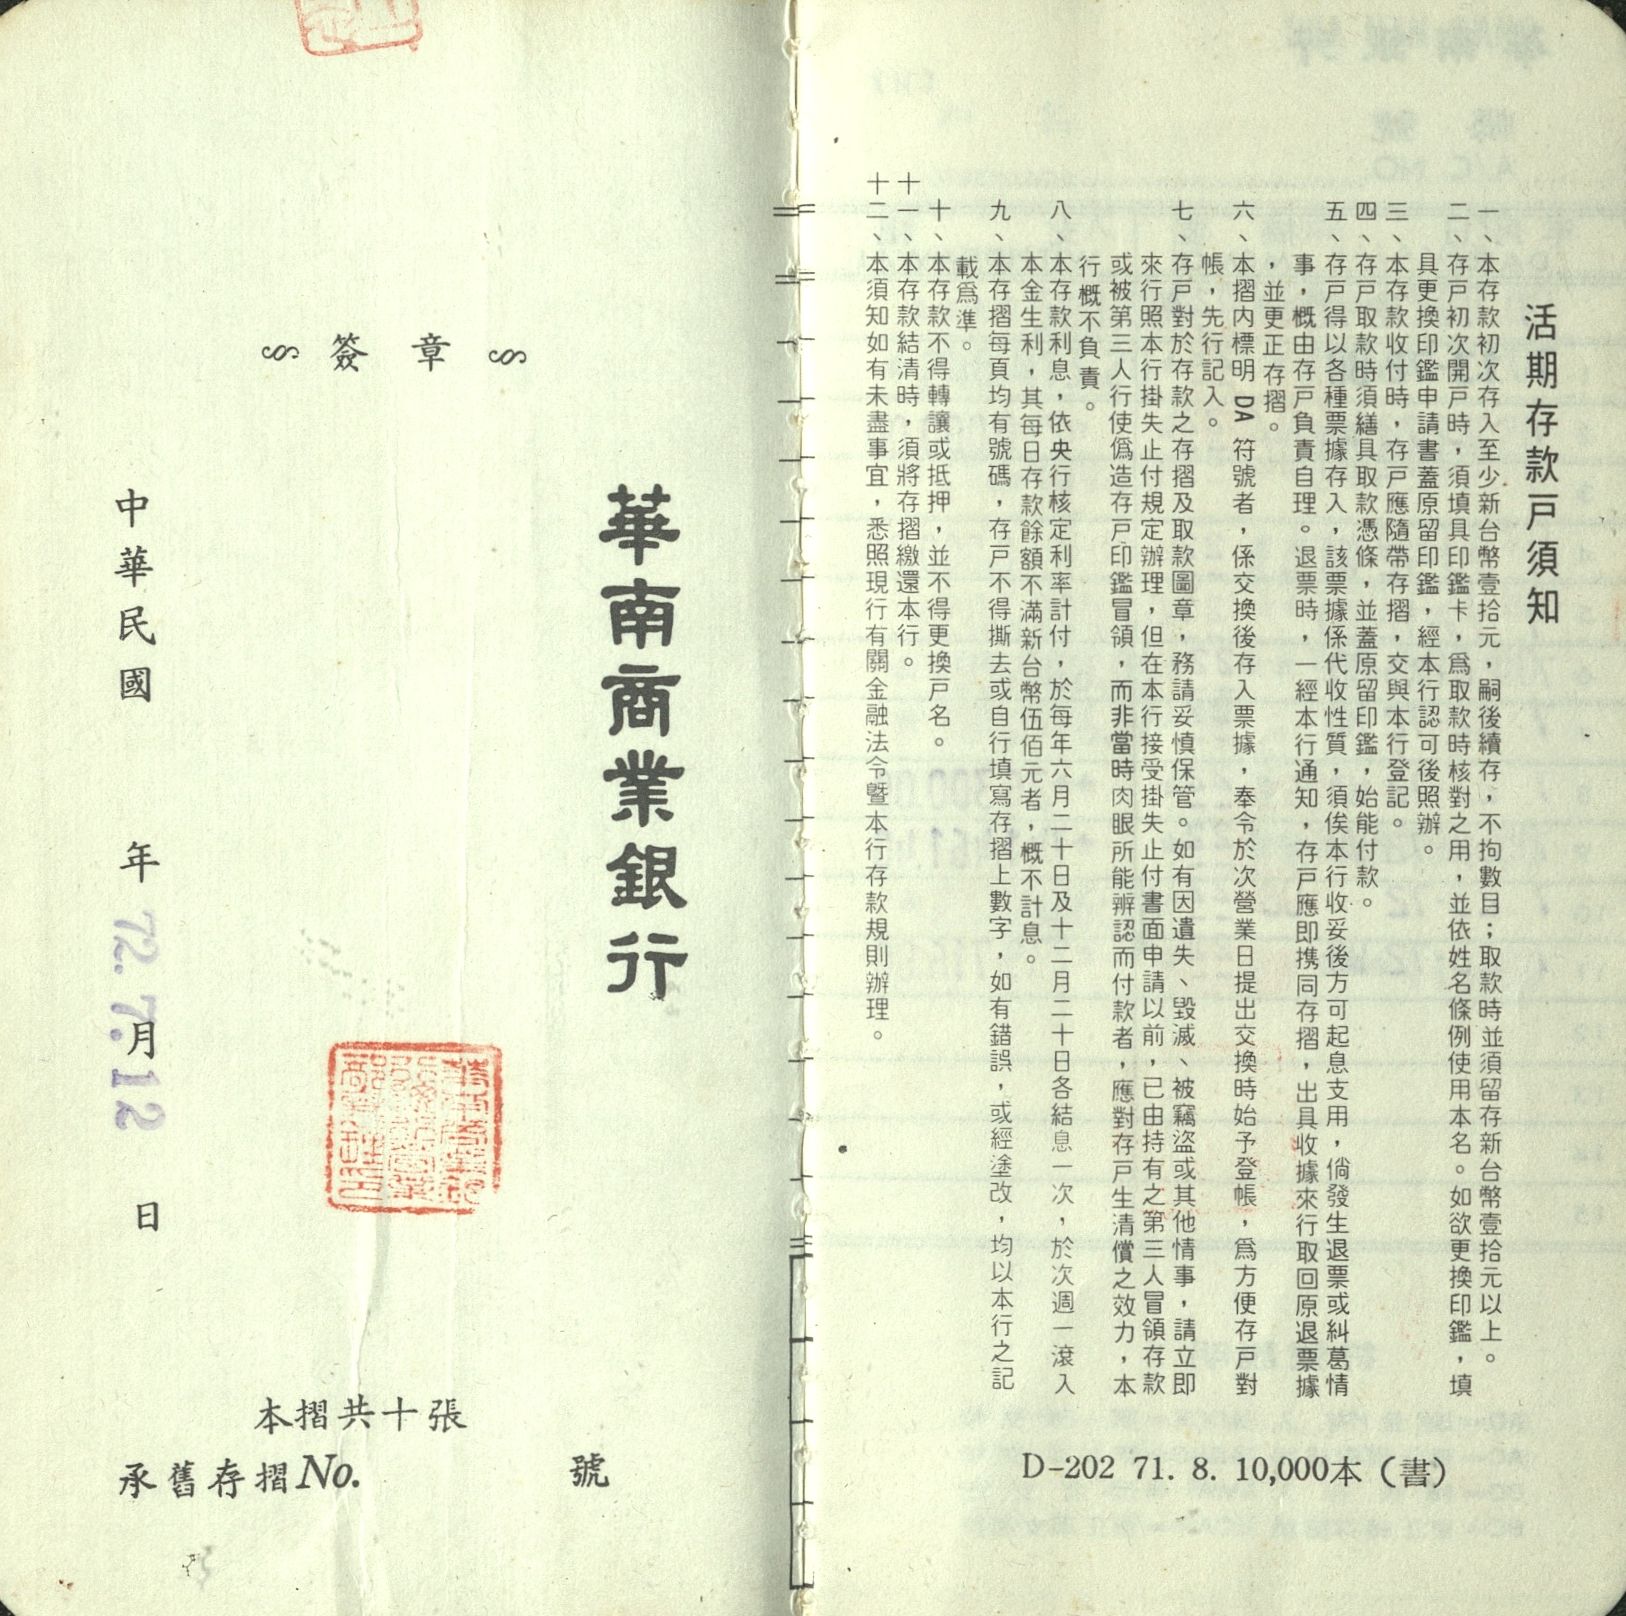 活期存款戸須知
一、本存款初次存入至少新台幣壹拾元，嗣後續存，不拘數目；取款時並須留存新台幣壹拾元以上。
二、存戸初次開戸時，須填具印鑑卡，爲取款時核對之用，並依姓名條例使用本名。如欲更換印鑑，填
具更換印鑑申請書蓋原留印鑑，經本行認可後照辦。
三、本存款收付時，存戸應隨帶存摺，交與本行登記。
四、存戸取款時須繕具取款憑條，並蓋原留印鑑，始能付款。
五、存戸得以各種票據存入，該票據係代收性質，須俟本行收妥後方可起息支用，倘發生退票或糾葛情
事，概由存戸負責自理。退票時，一經本行通知，存戸應即携同存摺，出具收據來行取回原退票據
，並更正存摺。
六、本摺内標明 DA 符號者，係交換後存入票據，奉令於次營業日提出交換時始予登帳，爲方便存戸對
帳，先行記入。
七、存戸對於存款之存摺及取款圖章，務請妥慎保管。如有因遺失、毀滅、被竊盜或其他情事，請立即
來行照本行掛失止付規定辦理，但在本行接受掛失止付書面申請以前，已由持有之第三人冒領存款
或被第三人行使僞造存戸印鑑冒領，而非當時肉眼所能辨認而付款者，應對存戸生清償之效力，本
行概不負責。
八、本存款利息，依央行核定利率計付，於每年六月二十日及十二月二十日各結息一次，於次週一滾入
本金生利，其每日存款餘額不滿新台幣伍佰元者，概不計息。
九、本存摺每頁均有號碼，存戸不得撕去或自行填寫存摺上數字，如有錯誤，或經塗改，均以本行之記
載爲準。
十、本存款不得轉讓或抵押，並不得更換戸名。
十一、本存款結清時，須將存摺繳還本行。
十二、本須知如有未盡事宜，悉照現行有關金融法令暨本行存款規則辦理。
D-202 71. 8. 10,000本（書）
華南商業銀行
簽章
中華民國 年 月 日
72. 7. 12
本摺共十張
承舊存摺No. 號